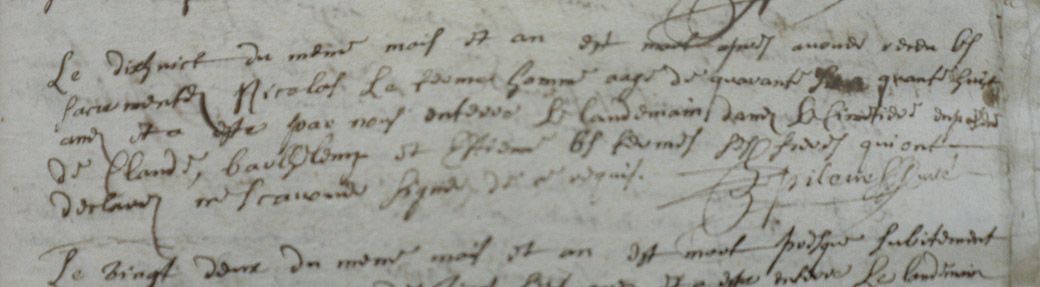 Le dixhuict du meme mois et an est mort apres avoir receu les
sacrements Nicolas Le fermes homme aagé de quarante quarante huit
ans et a esté par nous enterré le landemain dans le Cimetiere en presence
de Claude, Barthelemy et Estienne les fermes ses freres qui ont
declarés ne scavoir signer de ce requis. curé
Le vingt deux du meme mois et an est mort presque subitement
et a esté enterré le landemain